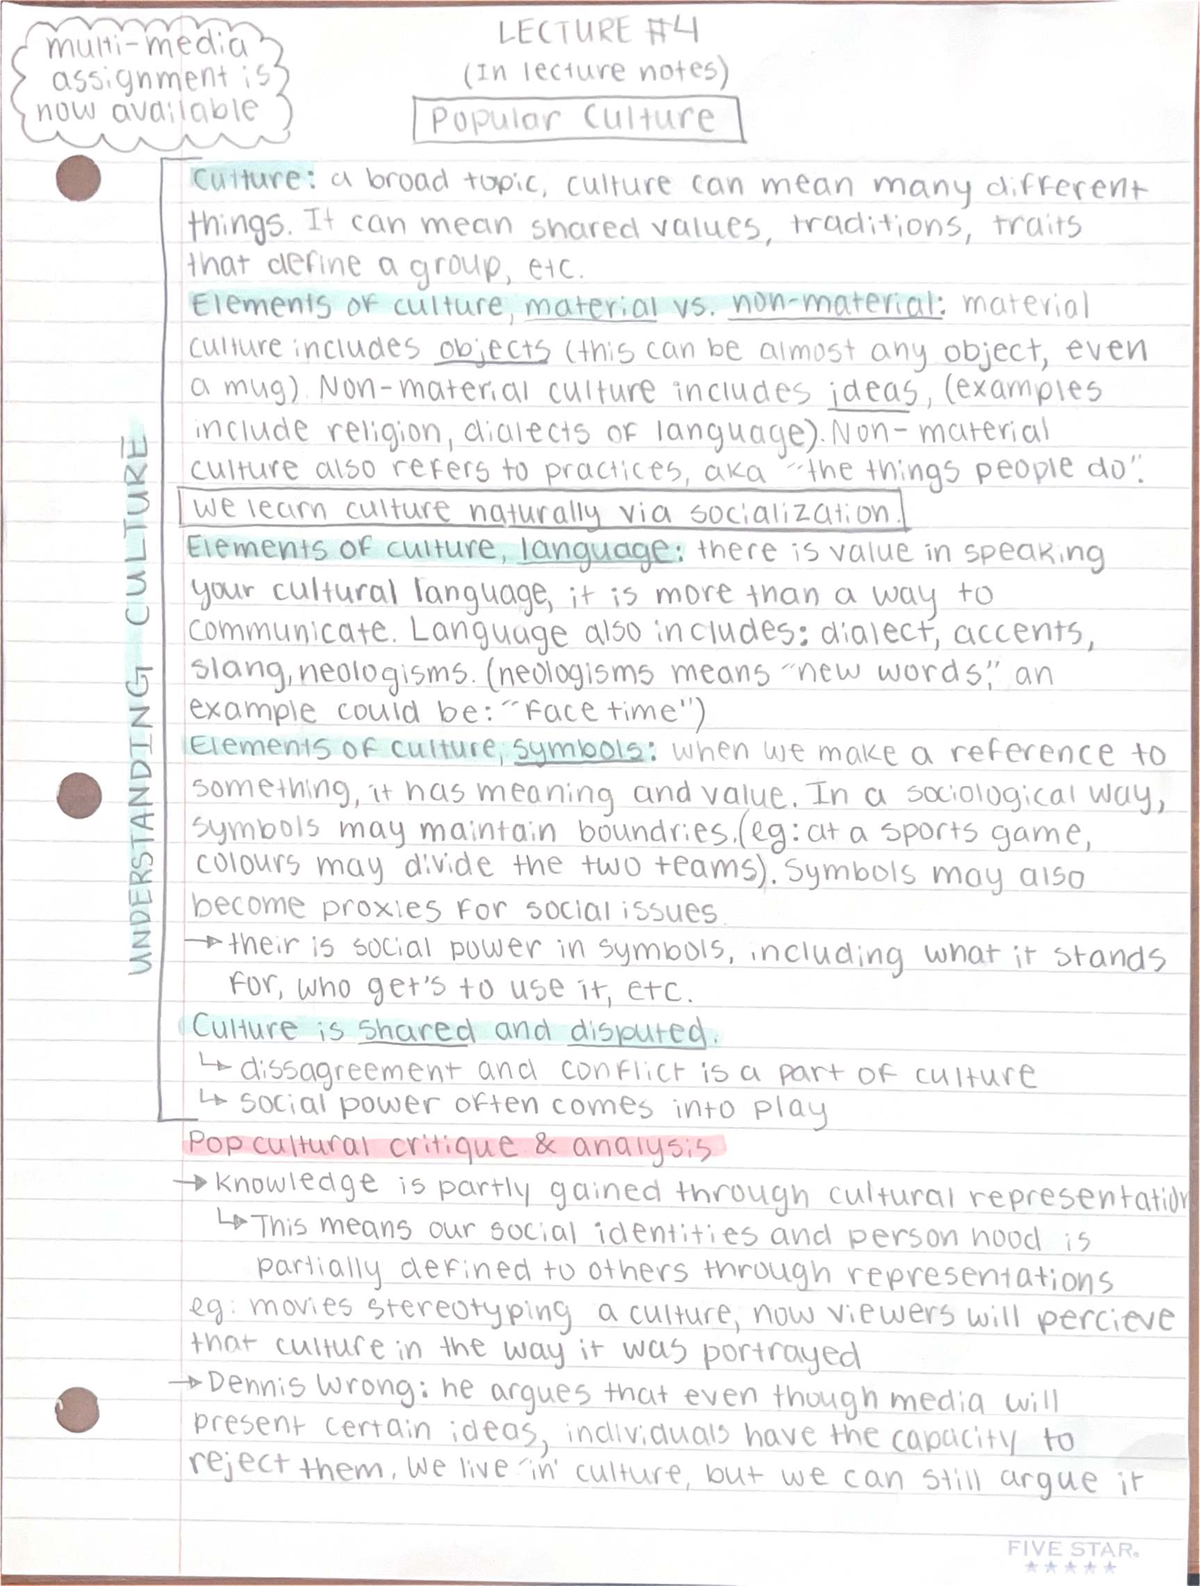 multi-media
assignment is
now available
LECTURE #4
(In lecture notes)
Popular Culture
UNDERSTANDING CULTURE
Culture: a broad topic, culture can mean many different
things. It can mean shared values, traditions, traits
that define a group, etc.
Elements of culture, material vs. non-material: material
culture includes objects (this can be almost any object, even
a mug). Non-material culture includes ideas, (examples
include religion, dialects of language). Non-material
culture also refers to practices, aka "the things people do".
We learn culture naturally via socialization.
Elements of culture, language: there is value in speaking
your cultural language, it is more than a way to
communicate. Language also includes: dialect, accents,
slang, neologisms. (neologisms means "new words," an
example could be: "Face time")
Elements of culture, symbols: when we make a reference to
something, it has meaning and value. In a sociological way,
symbols may maintain boundries. (eg: at a sports game,
colours may divide the two teams). Symbols may also
become proxies for social issues.
→ their is social power in symbols, including what it stands
for, who get's to use it, etc.
Culture is shared and disputed.
↳ dissagreement and conflict is a part of culture
↳ social power often comes into play
Pop cultural critique & analysis
→ Knowledge is partly gained through cultural representation
↳ This means our social identities and person hood is
partially defined to others through representations
eg: movies stereotyping a culture, now viewers will percieve
that culture in the way it was portrayed
→ Dennis Wrong: he argues that even though media will
present certain ideas, individuals have the capacity to
reject them. We live "in" culture, but we can still argue it
FIVE STAR.